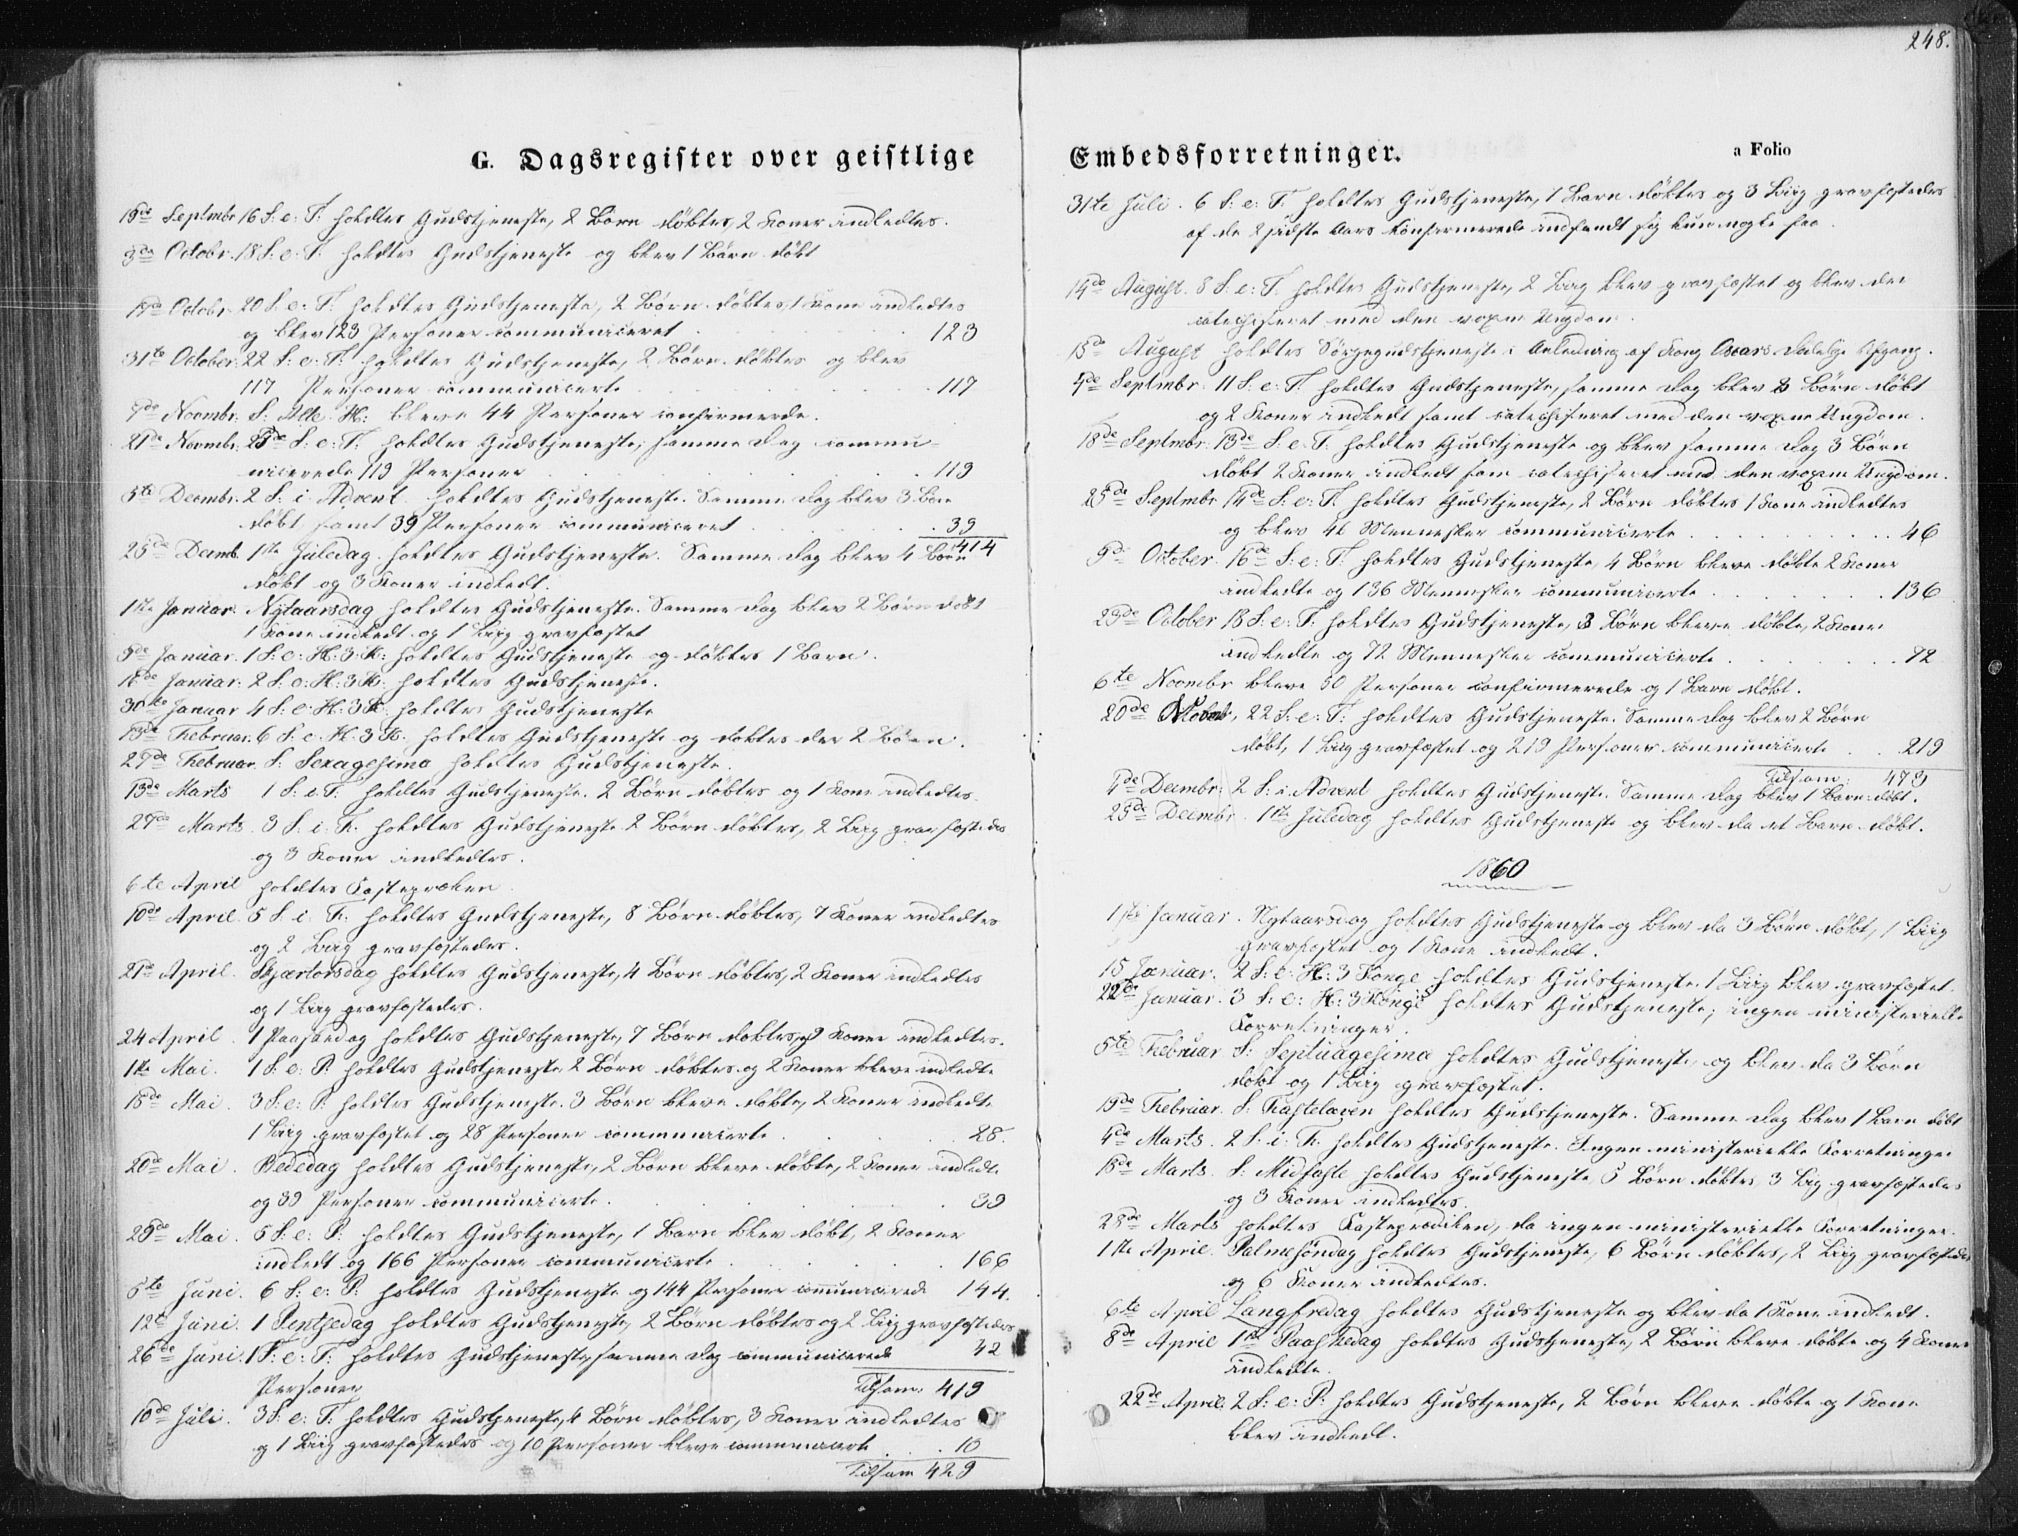 248.
G. Dagsregister over geistlige Embedsforretninger.
a Folio
19de Septmbr 16 S. e. T. holdtes Gudstjeneste, 2 Börn döbtes, 2 Koner indledtes.
3de Octobr. 18 S. e. T. holdtes Gudstjeneste og blev 1 Barn döbt
17de Octobr. 20 S. e. T. holdtes Gudstjeneste, 2 Börn döbtes, 1 Kone indledtes
og blev 123 Personer communiceret . . . 123
31te October. 22 S. e. T. holdtes Gudstjeneste, 2 Börn döbtes og blev
117 Personer communicerte . . . 117
7de Novmbr. S. Alle H: bleve 44 Personer confirmerede.
21de Novmbr. 25de S. e. T. holdtes Gudstjeneste; samme Dag commu-
nicerede 119 Personer . . . 119
5te Decmbr. 2 S. i Advent holdtes Gudstjeneste. Samme Dag blev 3 Börn
döbt samt 39 Personer communiceret . . . 39
414
25de Decmb. 1ste Juledag holdtes Gudstjeneste. Samme Dag blev 4 Börn
döbt og 3 Koner indledt.
1ste Januar. Nytaarsdag holdtes Gudstjeneste. Samme Dag blev 2 Börn döbt
1 Kone indledt og 1 Liig gravfæstet
9de Januar. 1 S. e. H. 3 K. holdtes Gudstjeneste og döbtes 1 Barn.
16de Januar. 2 S. e. H. 3 K. holdtes Gudstjeneste.
30te Januar 4 S. e. H. 3 K. holdtes Gudstjeneste
13de Februar. 6 S. e. H. 3 K. holdtes Gudstjeneste og döbtes der 2 Börn.
27de Februar. S. Sexagesima holdtes Gudstjeneste.
13de Marts 1 S. i F. holdtes Gudstjeneste. 2 Börn döbtes og 1 Kone indledtes.
27de Marts. 3 S. i F. holdtes Gudstjeneste 2 Börn döbtes, 2 Liig gravfæstedes
og 3 Koner indledtes.
6te April holdtes Fastepræken.
10de April. 5 S. i F. holdtes Gudstjeneste, 8 Börn döbtes, 7 Koner indledtes
og 2 Liig gravfæstedes.
21de April. Skjærtorsdag holdtes Gudstjeneste, 4 Börn döbtes, 2 Koner indledtes
og 1 Liig gravfæstedes.
24 April. 1 Paaskedag holdtes Gudstjeneste, 7 Börn döbtes, Koner indledtes.
1ste Mai. 1 S. e. P. holdtes Gudstjeneste 2 Börn döbtes og 2 Koner bleve indledte
15de Mai. 3 S. e. P. holdtes Gudstjeneste. 3 Börn bleve döbte, 2 Koner indledte
1 Liig gravfæstet og 28 Personer communicerte . . . 28.
20de Mai. Bededag holdtes Gudstjeneste, 2 Börn bleve döbte, 2 Koner indledte
og 39 Personer communicerte . . . 39
29de Mai. 5 S. e. P. holdtes Gudstjeneste, 1 Barn blev döbt, 2 Koner
indledt og 166 Personer communicerte . . . 166
5te Juni. 6 S. e. P. holdtes Gudstjeneste og 144 Personer communicerede 144.
12te Juni. 1 Pentsedag holdtes Gudstjeneste, 2 Börn döbtes og 2 Liig gravfæstedes
26de Juni. 1 S. e. T. holdtes Gudstjeneste, samme Dag communicerede 42
Personer Tilsam. 419
10de Juli. 3 S. e. T. holdtes Gudstjeneste, 4 Börn döbtes, 3 Koner indledtes
og 1 Liig gravfæstedes og 10 Personer bleve communicerte . . . 10
Tilsam 429
31te Juli. 6 S. e. T. holdtes Gudstjeneste, 1 Barn döbtes og 3 Liig gravfæstedes
af de 2 sidste Aars Konfirmerede indfandt sig kun nogle faa.
14de August. 8 S. e. T. holdtes Gudstjeneste, 2 Liig blev gravfæstet og blev der
catechiseret med den voxne Ungdom.
15de August holdtes Sörgegudstjeneste i Anledning af Kong Oscars dödelige Afgang.
4de Septmbr. 11 S. e. T. holdtes Gudstjeneste, samme Dag blev 8 Börn döbt
og 2 Koner indledt samt catechiseret med den voxne Ungdom.
18de Septmbr. 13de S. e. T. holdtes Gudstjeneste og blev samme Dag 3 Börn
döbt 2 Koner indledt som catechiseret med den voxne Ungdom.
25de Septmbr 14de S. e. T. holdtes Gudstjeneste, 2 Börn döbtes 1 Kone indledtes
og blev 46 Mennesker communicerte . . . 46
9de October. 16de S. e. T. holdtes Gudstjeneste, 4 Börn bleve döbte 2 Koner
indledte og 136 Mennesker communicerte . . . 136
23de October 18 S. e. T. holdtes Gudstjeneste, 3 Börn bleve döbte, 2 Koner
indledte og 72 Mennesker communicerte . . . 72
6te Novmbr bleve 50 Personer confirmerede og 1 Barn döbt.
20de Novbr, 22 S. e. T. holdtes Gudstjeneste. Samme Dag blev 2 Börn
döbt, 1 Liig gravfæstet og 219 Personer communicerte . . . 219
Tilsam. 473
4de Decmbr. 2 S. i Advent holdtes Gudstjeneste. Samme Dag blev 1 Barn döbt.
25de Decmbr. 1ste Juledag holdtes Gudstjeneste og blev da et Barn döbt.
1860
1ste Januar. Nytaarsdag holdtes Gudstjeneste og blev da 3 Börn döbt, 1 Liig
gravfæstet og 1 Kone indledt.
15 Januar. 2 S. e. H. 3 Konge holdtes Gudstjeneste. 1 Liig blev gravfæstet.
22de Januar. 3 S. e. H. 3 Konge holdtes Gudstjeneste; ingen ministerielle
Forretninger.
5te Februar S. Septuagesima holdtes Gudstjeneste og blev da 3 Börn
döbt og 1 Liig gravfæstet.
19de Februar. S. Fastelaven holdtes Gudstjeneste. Samme Dag blev 1 Barn döbt
4de Marts. 2 S. i F. holdtes Gudstjeneste. Ingen ministerielle Forretninger
18de Marts. S. Midfaste holdtes Gudstjeneste 5 Börn döbtes 3 Liig gravfæstedes
og 3 Koner indledtes.
28de Marts holdtes Fasteprædiken, da ingen ministerielle Forretninger.
1ste April. Palmesöndag holdtes Gudstjeneste, 6 Börn döbtes, 2 Liig gravfæstedes
og 6 Koner indledtes.
6te April Langfredag holdtes Gudstjeneste og blev da 1 Kone indledt.
8de April 1ste Paaskedag holdtes Gudstjeneste, 2 Börn bleve döbte og 4 Koner
indledte.
22de April. 2 S. e. P. holdtes Gudstjeneste, 2 Börn bleve döbte og 1 Kone
blev indledt.